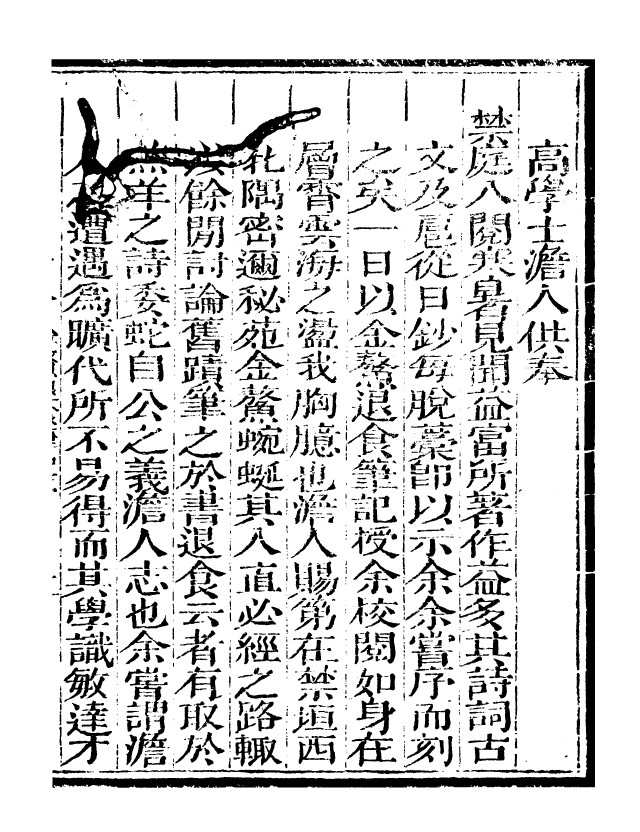 高學士澹人供奉
禁庭八閱寒暑見聞益富所著作益多其詩詞古
文及扈從日鈔每脫藁即以示余余嘗序而刻
之矣一日以金鰲退食筆記授余校閱如身在
層霄雲海之盪我胸臆也澹人賜第在禁垣西
北隅密邇秘苑金鰲蜿蜒其入直必經之路輙
餘閒討論舊蹟筆之於書退食云者有取於
羔羊之詩委蛇自公之義澹人志也余嘗謂澹
人遭遇為曠代所不易得而其學識敏達才